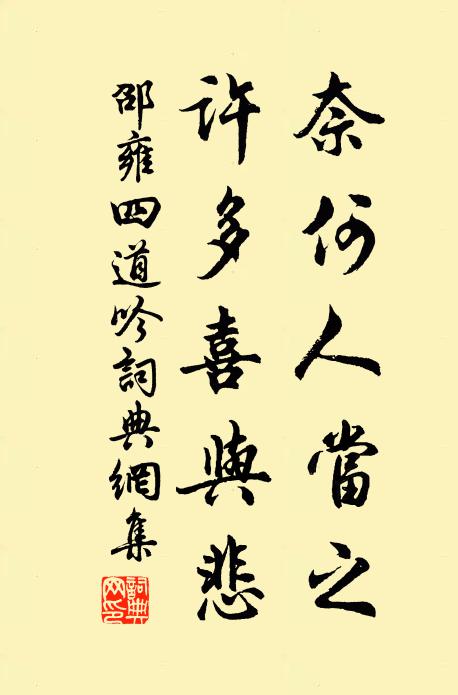 奈何人當之
許多喜與悲
邵雍四道吟詞典網集
詞典网印